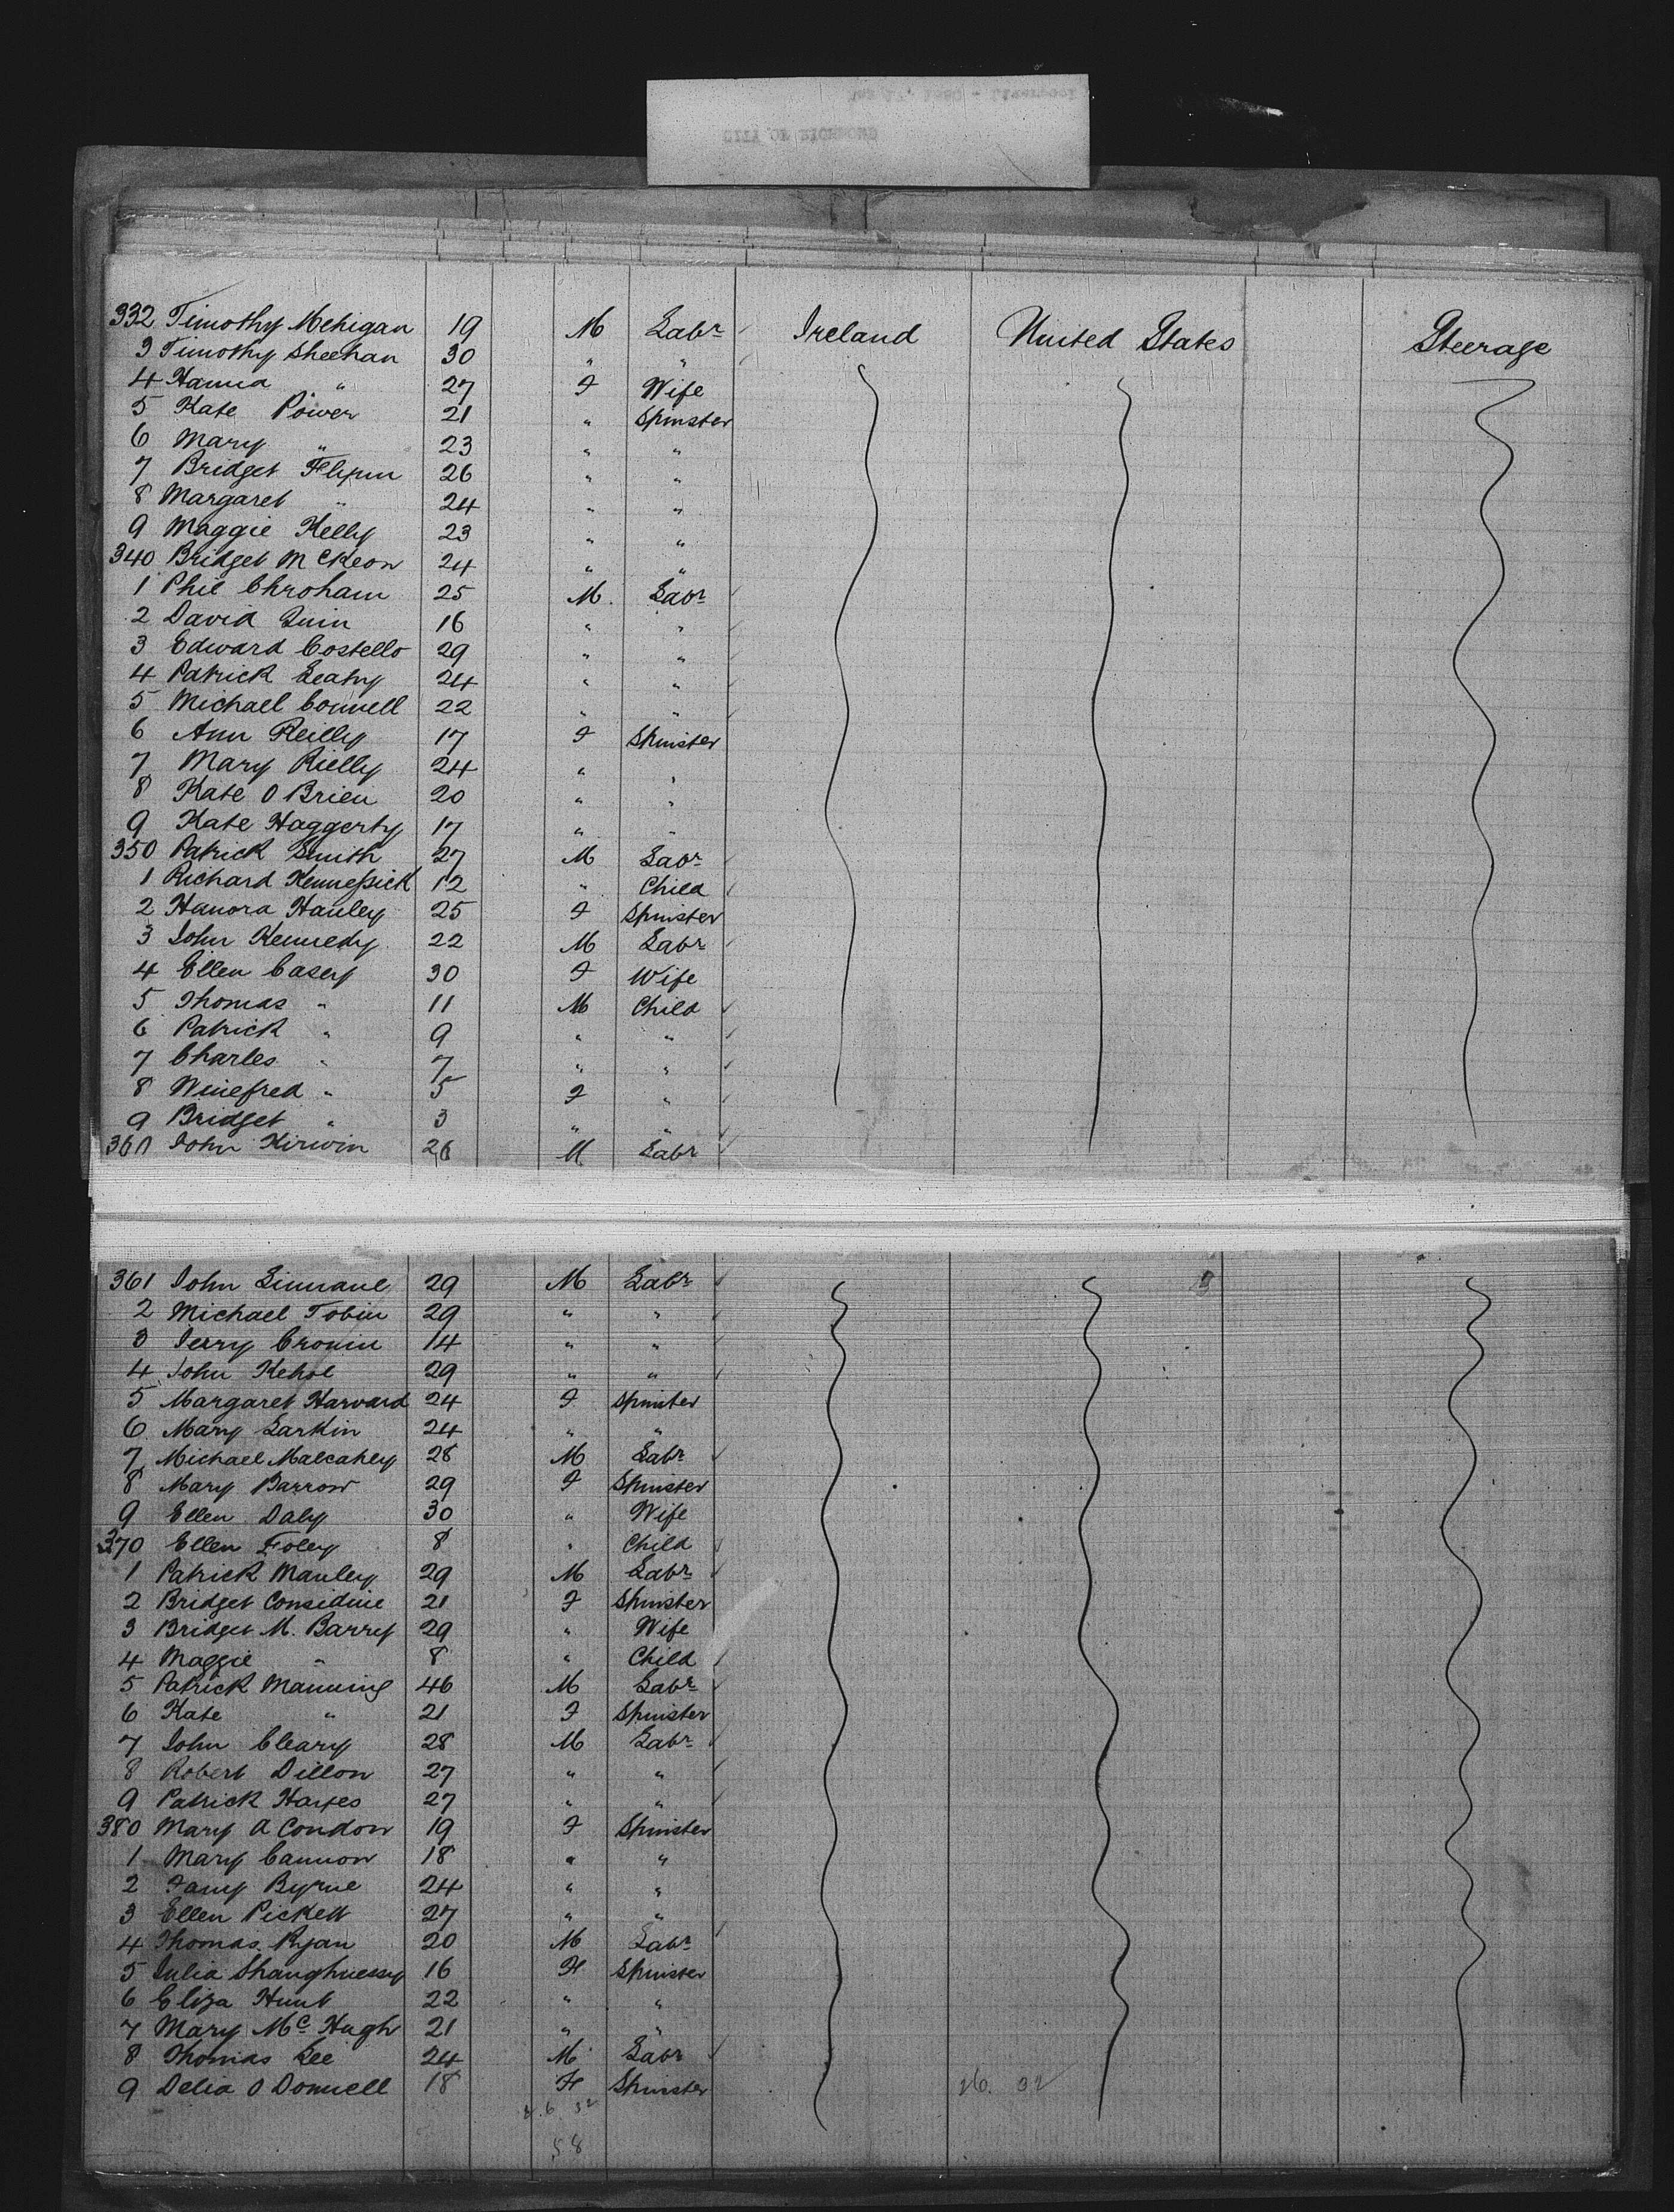 CITY OF RICHMOND
332 Timothy Mehigan 19 M Labr Ireland United States Steerage
3 Timothy Sheehan 30 " "
4 Hanna " 27 F Wife
5 Kate Power 21 " Spinster
6 Mary " 23 " "
7 Bridget Flynn 26 " "
8 Margaret " 24 " "
9 Maggie Kelly 23 " "
340 Bridget McKeon 24 " "
1 Phil Chroham 25 M. Labr
2 David Quin 16 " "
3 Edward Costello 29 " "
4 Patrick Leahy 24 " "
5 Michael Connell 22 " "
6 Ann Reilly 17 F Spinster
7 Mary Rielly 24 " "
8 Kate O Brien 20 " "
9 Kate Haggerty 17 " "
350 Patrick Smith 27 M Labr
1 Richard Kennessick 12 " Child
2 Hanora Hanley 25 F Spinster
3 John Kennedy 22 M Labr
4 Ellen Casey 30 F Wife
5 Thomas " 11 M Child
6 Patrick " 9 " "
7 Charles " 7 " "
8 Winefred " 5 F "
9 Bridget " 3 " "
360 John Kirwin 26 M Labr
361 John Linnane 29 M Labr
2 Michael Tobin 29 " "
3 Jerry Cronin 14 " "
4 John Kehoe 29 " "
5 Margaret Harvard 24 F Spinster
6 Mary Larkin 24 " "
7 Michael Malcahey 28 M Labr
8 Mary Barrow 29 F Spinster
9 Ellen Daly 30 " Wife
370 Ellen Foley 8 " Child
1 Patrick Manley 29 M Labr
2 Bridget Considine 21 F Spinster
3 Bridget M. Barry 29 " Wife
4 Maggie " 8 " Child
5 Patrick Manning 46 M Labr
6 Kate " 21 F Spinster
7 John Cleary 28 M Labr
8 Robert Dillon 27 " "
9 Patrick Hayes 27 " "
380 Mary A Condon 19 F Spinster
1 Mary Cannon 18 " "
2 Fany Byrne 24 " "
3 Ellen Pickett 27 " "
4 Thomas Ryan 20 M Labr
5 Julia Shaughnessy 16 F Spinster
6 Eliza Hunt 22 " "
7 Mary Mc Hugh 21 " "
8 Thomas Lee 24 M Labr
9 Delia O Donnell 18 F Spinster 26. 32
58